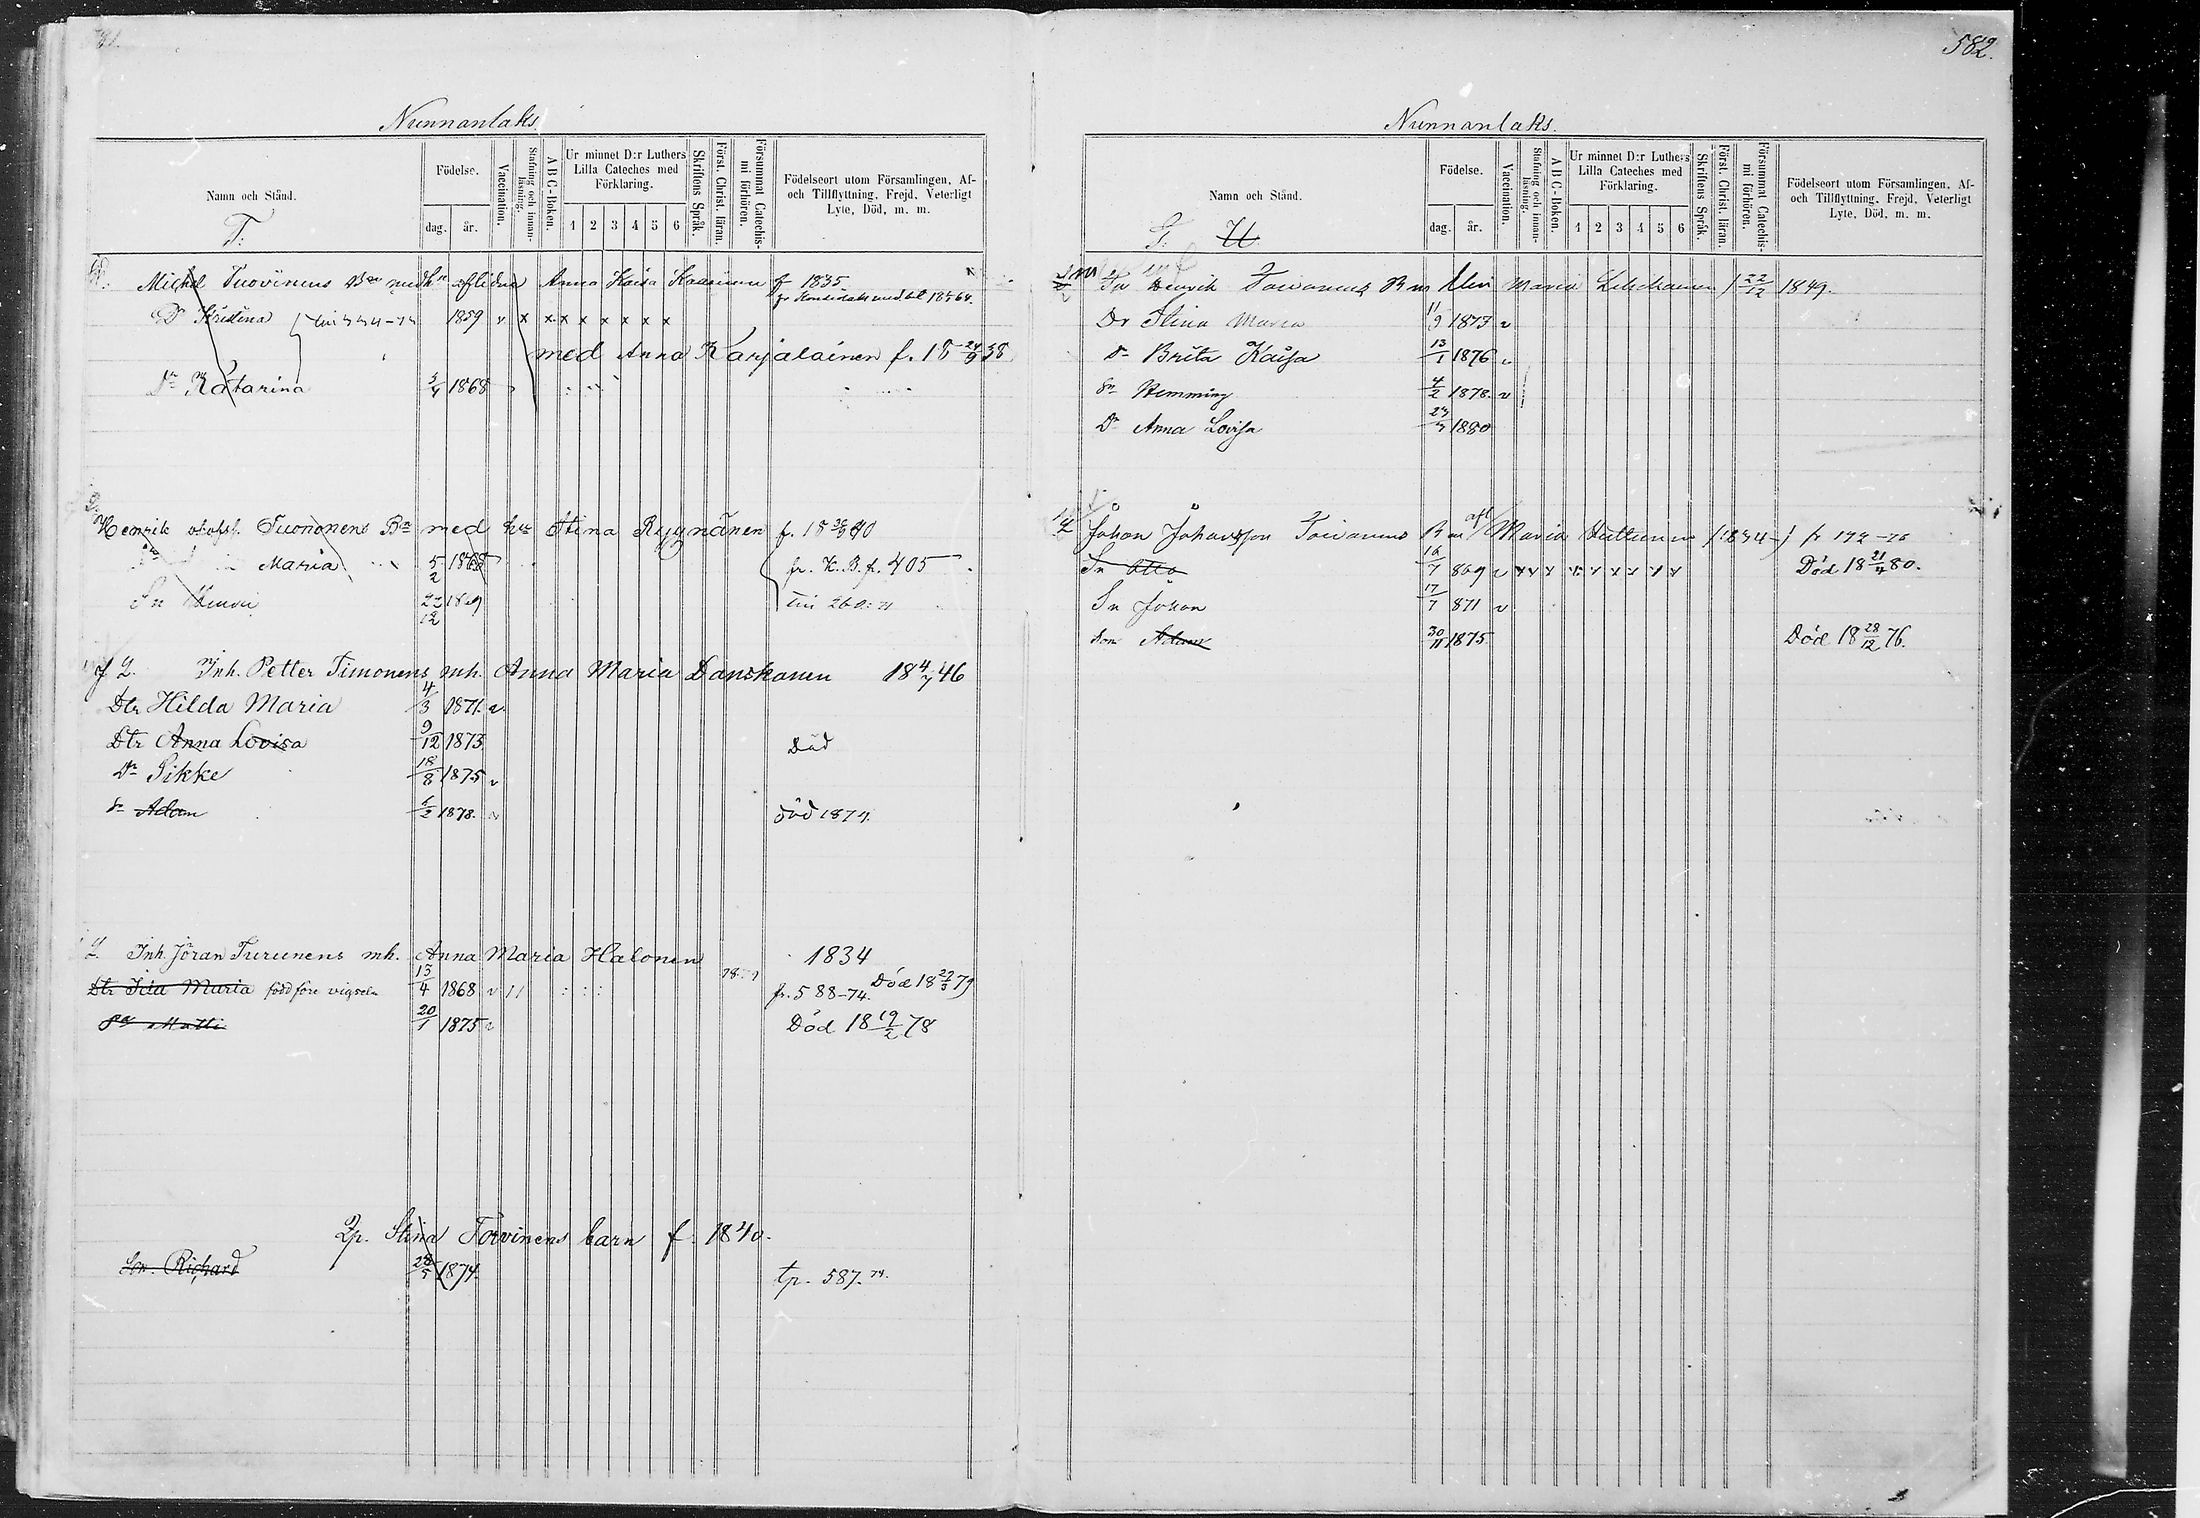 Nunnanlaks.
Namn och Stånd.
Födelse.
dag.
år.
Vaccination.
Stafning och innan-
läsning.
A B C-Boken.
Ur minnet D:r Luthers
Lilla Cateches med
Förklaring.
1 2 3 4 5 6
Skriftens Språk.
Först. Christ. läran.
Försummat Catechis-
mi förhören.
Födelseort utom Församlingen, Af-
och Tillflyttning, Frejd, Veterligt
Lyte, Död, m. m.
T:
Michel Tuovinens Bn med hu aflidne Anna Kaisa f 1835
Dr Kristina 1859 v x x x x x x x x
med Anna Karjalainen f. 18 24/9 38
Dr Katarina 1868
Henrik Tuononens Bn med hu Stina Ryynänen f. 18 40
Maria 5/2 1868 fr. K. B. p. 405
Sn Henric 12
f 2. Inh. Petter Timonens mh. Anna Maria Danskanen 18 4/7 46
Dtr Hilda Maria 4/3 1871. v
Dtr Anna Lovisa 9/12 1873 Död
Dr Sikke 18/8 1875 v
Sn Adam 1878. v död 1879.
2. Inh. Jöran Turunens mh. Anna Maria Halonen 1834
Dtr Ida Maria född före vigseln 13/4 1868 v fr. 588-74. Död 18 79
Sn Matti 20/1 1875 v Död 18 19/2 78
Stina Torvinens barn f. 1840.
Son Richard 1874. tp. 587. 74.
582.
Nunnanlaks.
Namn och Stånd.
Födelse.
dag.
år.
Vaccination.
Stafning och innan-
läsning.
A B C-Boken.
Ur minnet D:r Luthers
Lilla Cateches med
Förklaring.
1 2 3 4 5 6
Skriftens Språk.
Först. Christ. läran.
Försummat Catechis-
mi förhören.
Födelseort utom Församlingen, Af-
och Tillflyttning, Frejd, Veterligt
Lyte, Död, m. m.
T: U
Henrik Toivanens B m Maria f 22/12 1849.
Dr Stina Maria 11/9 1873 v
Dr Brita Kaisa 13/1 1876 v
Sn Hemming 4/2 1878. v
Dr Anna Lovisa 1880
Johan Johansson Toivanens B m Maria (1834)
Sn Otto 16/7 869 v Död 18 21/4 80.
Sn Johan 17/7 871 v
Son Adam 30/11 1875 Död 18 28/12 76.